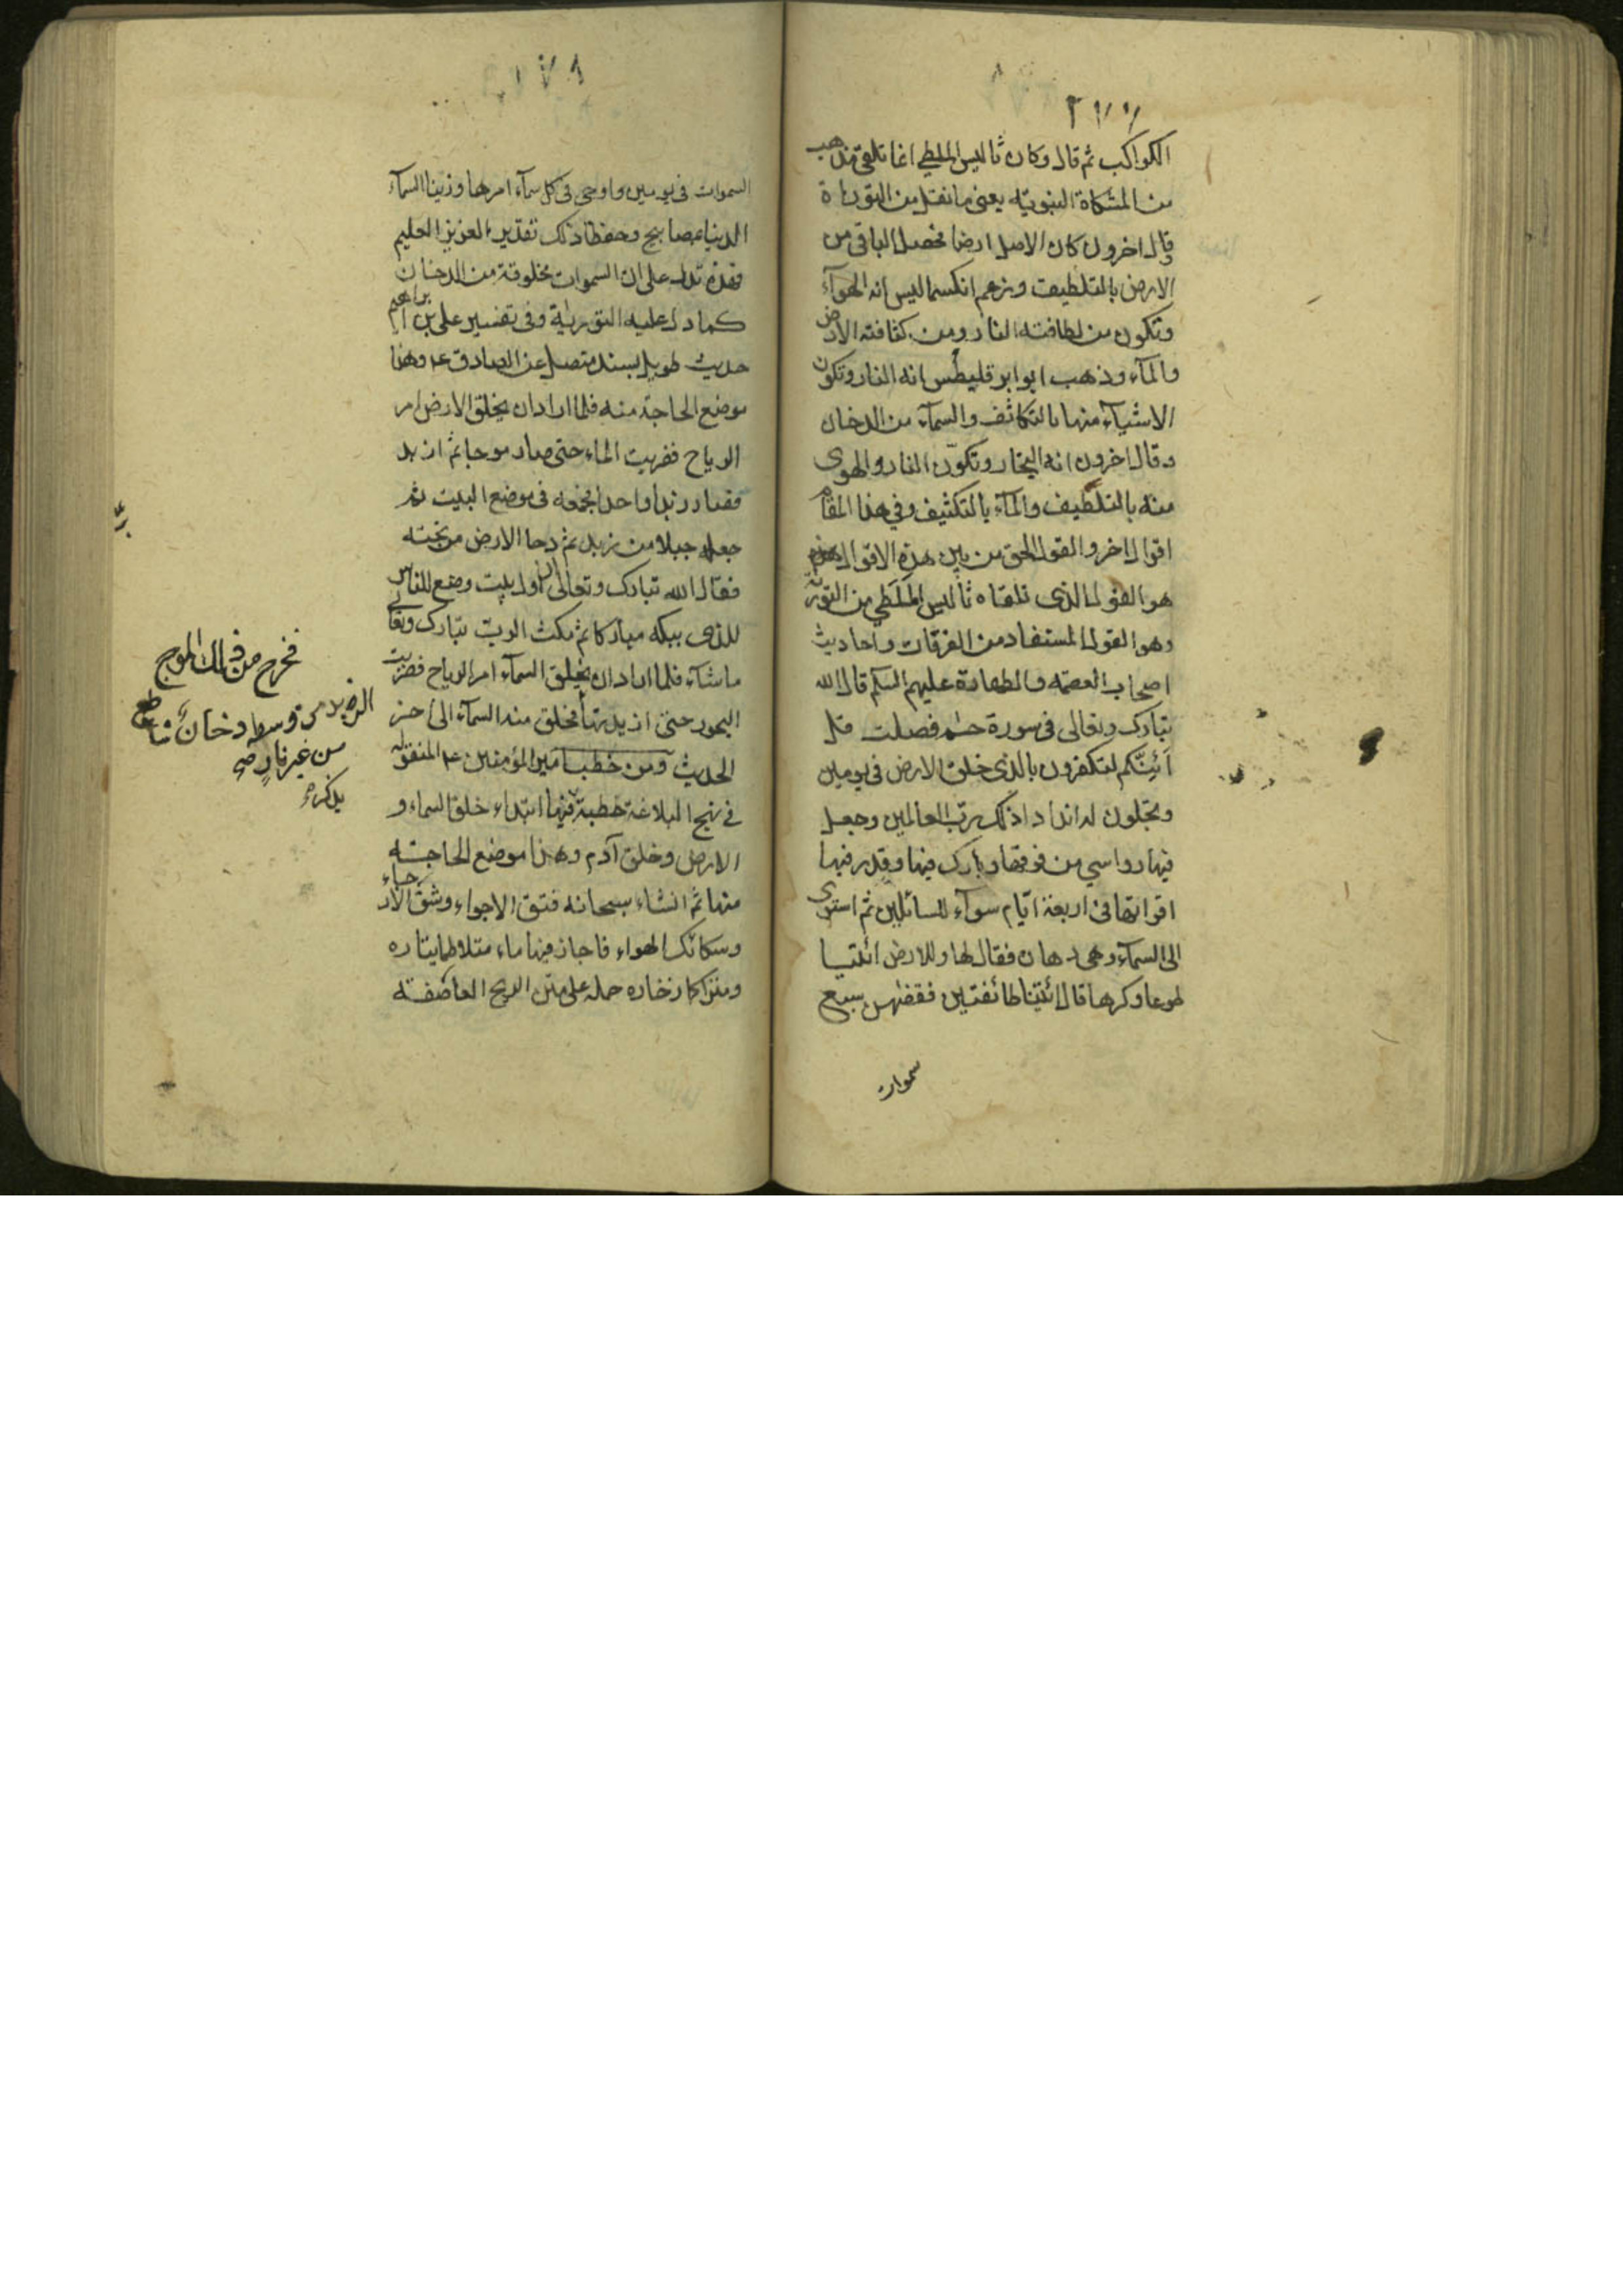 ٢٧٧
الكواكب ثم قال وكان ثاليس الملطي انما تلقى مذهبه
من المشكاة النبويّه يعنى ما نقل من التوراة
وقال اخرون كان الاصل ارضا فحصل الباقى من
الارض بالتلطيف وزعم انكسماليس انه الهوآء
وتكون من لطافته النار ومن كثافته الارض
والمآء وذهب ابو ابرقليطس انه النار وتكون
الاشيآء منها بالتكاثف والسمآء من الدخان
وقال اخرون انه البخار وتكوّن النار والهوى
منه بالتلطيف والمآء بالتكثيف وفي هذا المقام
اقوال اخر والقول الحق من بين هذه الاقوال
هو القول الذى تلقاه ثاليس الملَطي من التورية
وهو القول المستفاد من الفرقان واحاديث
اصحاب العصمه والطهارة عليهم السلم قال الله
تبارك وتعالى فى سورة حٓم فصلت قل
أئِنَّكم لتكفرون بالذى خلق الارض في يومين
وتجعلون له اندادا ذلك رب العالمين وجعل
فيها رواسي من فوقها وبارك فيها وقدر فيها
اقواتها فى اربعة ايّام سوآء للسائلين ثم استوى
الى السمآء وهى دخان فقال لها وللارض ائتيا
طوعا وكرها قالا ائتينا طائفتين فقضٰهن سبع
سموات
السموات فى يومين واوحى فى كل سمآء امرها وزينا السمآء
الدنيا بمصابيح وحفظا ذلك تقدير العزيز العليم
فهذه تدل على ان السموات مخلوقة من الدخان
كما دل عليه التورية وفى تفسير على بن ابراهيم
حديث طويل بسند متصل عن الصادق ع وهذا
موضع الحاجة منه فلما اراد ان يخلق الارض امر
الرياح فضربت الماء حتى صار موجا ثم ازبد
فصار زبدا واحدا فجمعه فى موضع البيت ثم
جعله جبلا من زبد ثم دحا الارض من تحته
فقال الله تبارك وتعالى ان اول بيت وضع للناس
للذى ببكه مباركا ثم مكث الربّ تبارك وتعالى
ماشآء فلما اراد ان يخلق السمآء امر الرياح فضربت
البحور حتى ازبدتها فخلق منه السمآء الى اخر
الحديث ومن خطب امير المؤمنين ع المنقوله
فى نهج البلاغة خطبة فيها ابتداء خلق السماء و
الارض وخلق آدم وهذا موضع الحاجته
منها ثم انشاء سبحانه فتق الاجواء وشق الارجاء
وسكائك الهواء فاجاز فيها ماء متلاطما يتاره
ومتراكما زخاره حمله على متن الريح العاصفته
فخرج من ذلك الموج
الزبد من وسطه دخان ساطع
من غير نار صح